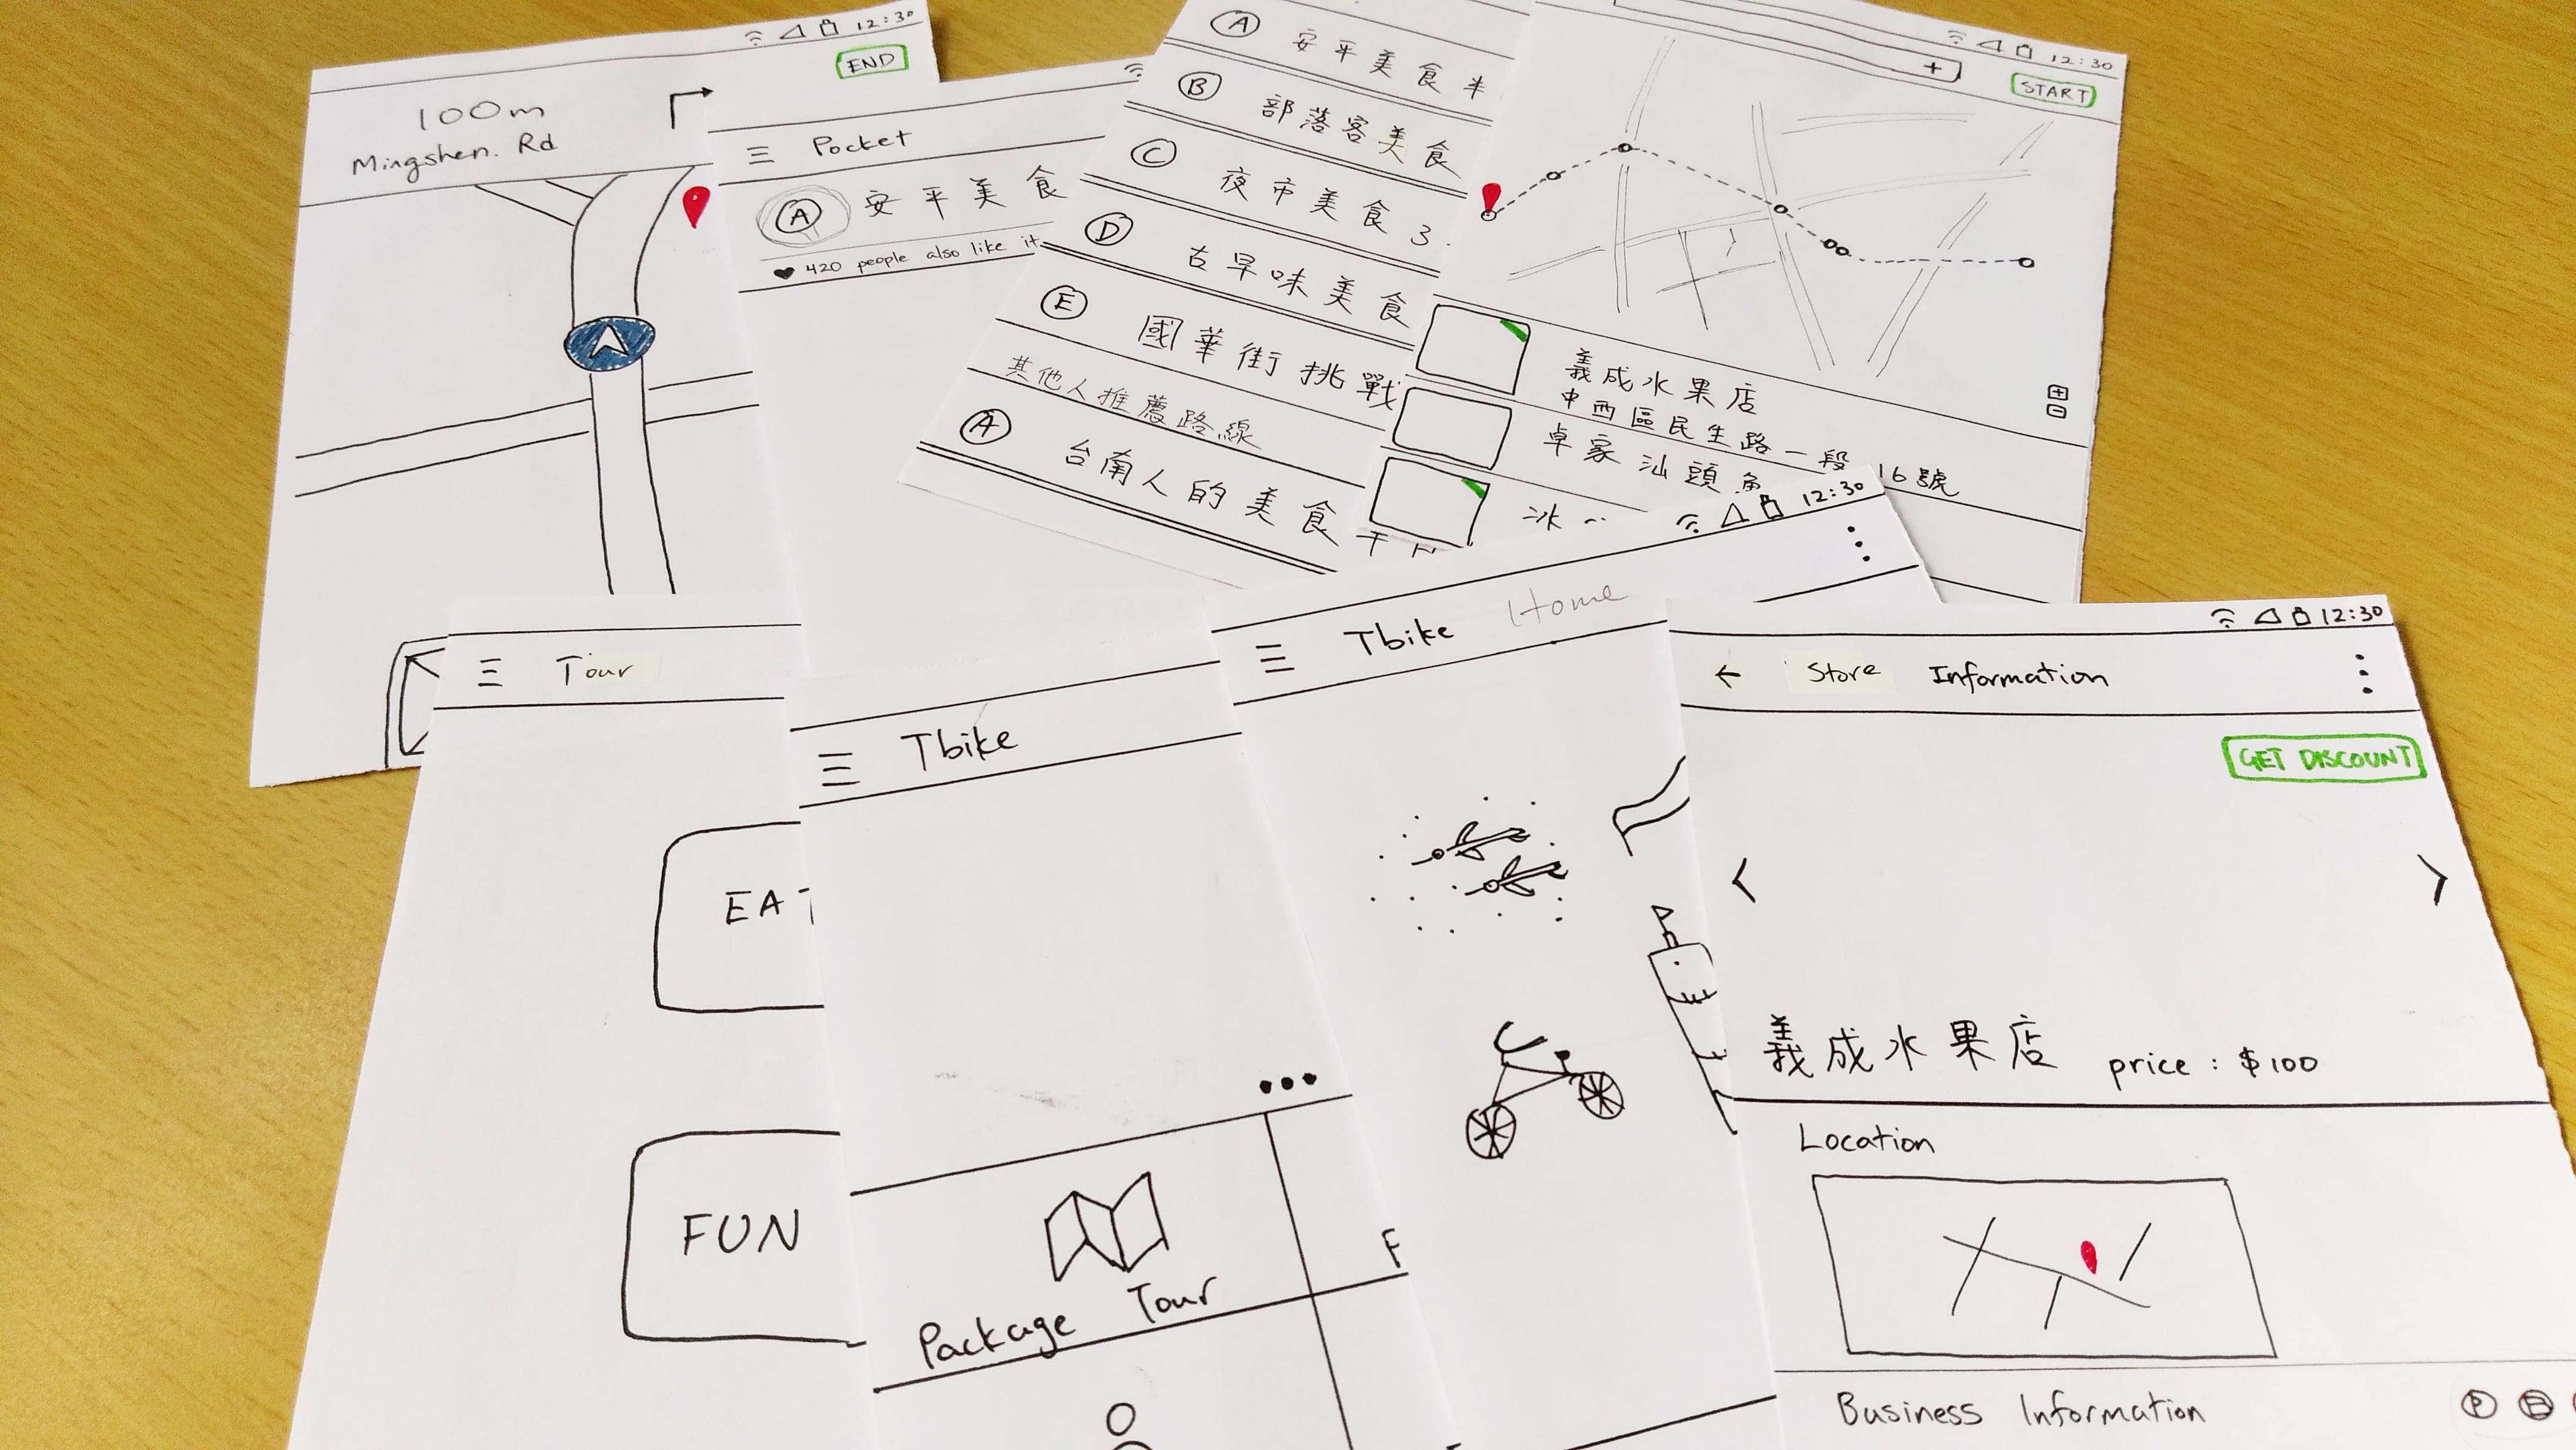 12:30
END
100m
Mingshen. Rd
Pocket
A 安平美食
420 people also like it
A 安平美食半
B 部落客美食
C 夜市美食 3
D 古早味美食
E 國華街挑戰
其他人推薦路線
A 台南人的美食
12:30
+
START
義成水果店
中西區民生路一段 16號
卓家汕頭魚
冰
12:30
Tour
EAT
FUN
Tbike
Package Tour
F
Tbike Home
12:30
Store Information
GET DISCOUNT
義成水果店 price : $100
Location
Business Information
P